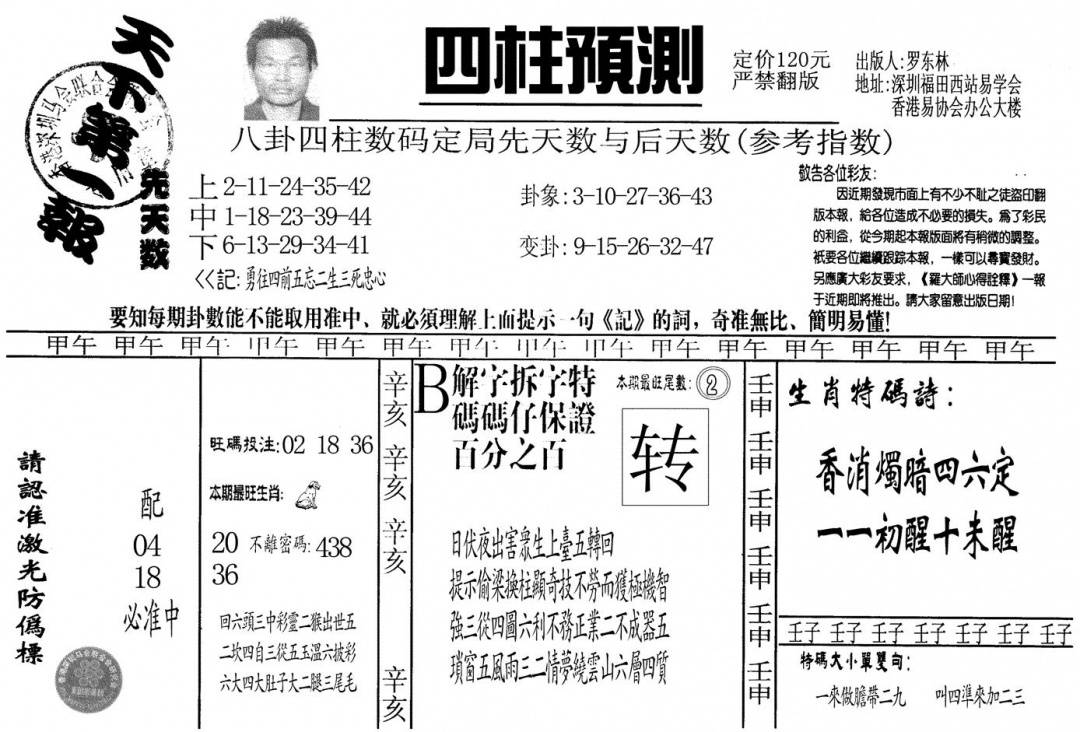 天下第一報
四柱預測
定价120元
严禁翻版
出版人:罗东林
地址:深圳福田西站易学会
香港易协会办公大楼
八卦四柱数码定局先天数与后天数(参考指数)
先天数
上 2-11-24-35-42
中 1-18-23-39-44
下 6-13-29-34-41
卦象:3-10-27-36-43
变卦:9-15-26-32-47
<<記:勇往四前五忘二生三死忠心
敬告各位彩友:
因近期發現市面上有不少不耻之徒盜印翻
版本報，給各位造成不必要的損失。爲了彩民
的利益，從今期起本報版面將有稍微的調整。
衹要各位繼續跟踪本報，一樣可以尋寶發財。
另應廣大彩友要求，《羅大師心得詮釋》一報
于近期即將推出。請大家留意出版日期!
要知每期卦數能不能取用准中、就必須理解上面提示一句《記》的詞，奇准無比、簡明易懂!
甲午 甲午 甲午 甲午 甲午 甲午 甲午 甲午 甲午 甲午 甲午 甲午 甲午 甲午 甲午
請認准激光防僞標
配
04
18
必准中
旺碼投注:02 18 36
本期最旺生肖:
20 不離密碼:438
36
回六頭三中彩靈二猴出世五
二坎四自三從五玉溫六披彩
六大四大肚子大二腿三尾毛
辛亥 辛亥 辛亥 辛亥
B解字拆字特
碼碼仔保證
百分之百
本期最旺尾數:2
转
日伏夜出害衆生上臺五轉回
提示偷梁換柱顯奇技不勞而獲極機智
強三從四圖六利不務正業二不成器五
瑣窗五風雨三二情夢繞雲山六層四質
壬申 壬申 壬申 壬申 壬申 壬申
生肖特碼詩:
香消燭暗四六定
一一初醒十未醒
壬子 壬子 壬子 壬子 壬子 壬子 壬子
特碼大小單雙句:
一來做膽帶二九 叫四準來加二三